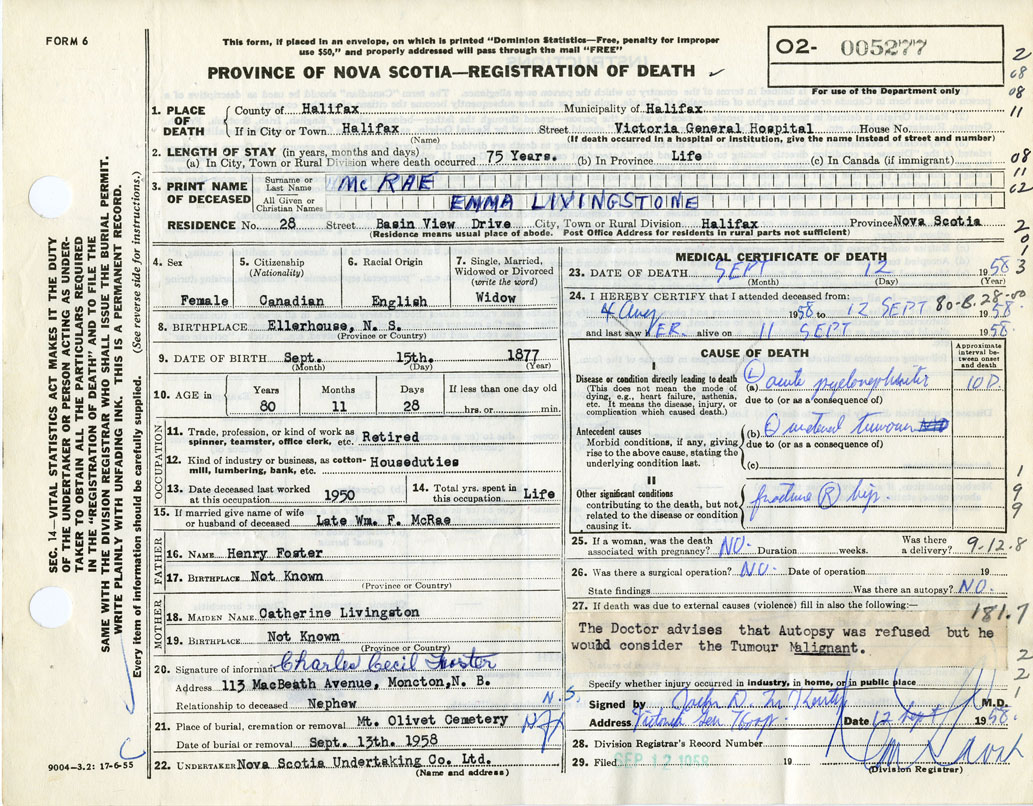 FORM 6
This form, if placed in an envelope, on which is printed "Dominion Statistics—Free, penalty for improper
use $50," and properly addressed will pass through the mail "FREE"
PROVINCE OF NOVA SCOTIA—REGISTRATION OF DEATH
02- 005277
For use of the Department only
1. PLACE OF DEATH County of Halifax Municipality of Halifax
If in City or Town Halifax Street Victoria General Hospital House No.
(Name) (If death occurred in a hospital or institution, give the name instead of street and number)
2. LENGTH OF STAY (in years, months and days)
(a) In City, Town or Rural Division where death occurred 75 Years. (b) In Province Life (c) In Canada (if immigrant)
3. PRINT NAME OF DECEASED Surname or Last Name Mc RAE
All Given or Christian Names EMMA LIVINGSTONE
RESIDENCE No. 28 Street Basin View Drive City, Town or Rural Division Halifax Province Nova Scotia
(Residence means usual place of abode. Post Office Address for residents in rural parts not sufficient)
4. Sex
Female
5. Citizenship
(Nationality)
Canadian
6. Racial Origin
English
7. Single, Married,
Widowed or Divorced
(write the word)
Widow
8. BIRTHPLACE Ellerhouse, N. S.
(Province or Country)
9. DATE OF BIRTH Sept. 15th. 1877
(Month) (Day) (Year)
10. AGE in Years Months Days If less than one day old
80 11 28 hrs. or min.
OCCUPATION
11. Trade, profession, or kind of work as
spinner, teamster, office clerk, etc. Retired
12. Kind of industry or business, as cotton-
mill, lumbering, bank, etc. Houseduties
13. Date deceased last worked
at this occupation 1950
14. Total yrs. spent in
this occupation Life
15. If married give name of wife
or husband of deceased Late Wm. F. McRae
FATHER
16. NAME Henry Foster
17. BIRTHPLACE Not Known
(Province or Country)
MOTHER
18. MAIDEN NAME Catherine Livingston
19. BIRTHPLACE Not Known
(Province or Country)
20. Signature of informant Charles Cecil Foster
Address 113 MacBeath Avenue, Moncton, N. B.
Relationship to deceased Nephew
21. Place of burial, cremation or removal Mt. Olivet Cemetery N.S.
Date of burial or removal Sept. 13th. 1958
22. UNDERTAKER Nova Scotia Undertaking Co. Ltd.
(Name and address)
MEDICAL CERTIFICATE OF DEATH
23. DATE OF DEATH SEPT 12 1958
(Month) (Day) (Year)
24. I HEREBY CERTIFY that I attended deceased from:
4 Aug 1958 to 12 SEPT 1958
80-B.28-00
and last saw HER alive on 11 SEPT 1958
CAUSE OF DEATH
Approximate
interval be-
tween onset
and death
I
Disease or condition directly leading to death
(This does not mean the mode of
dying, e.g., heart failure, asthenia,
etc. It means the disease, injury, or
complication which caused death.)
(a) (L) acute pyelonephritis 10 D.
due to (or as a consequence of)
Antecedent causes
Morbid conditions, if any, giving
rise to the above cause, stating the
underlying condition last.
(b) (L) ureteral tumour
due to (or as a consequence of)
(c)
II
Other significant conditions
contributing to the death, but not
related to the disease or condition
causing it.
fracture (R) hip.
25. If a woman, was the death
associated with pregnancy? NO. Duration weeks. Was there
a delivery? 9-12-8
26. Was there a surgical operation? NO. Date of operation 19
State findings Was there an autopsy? NO.
27. If death was due to external causes (violence) fill in also the following:—
181.7
The Doctor advises that Autopsy was refused but he
would consider the Tumour Malignant.
Specify whether injury occurred in industry, in home, or in public place
Signed by M.D.
Address Victoria Gen Hosp. Date 12 Sept 1958.
28. Division Registrar's Record Number
29. Filed SEP 12 1958 19
(Division Registrar)
SEC. 14—VITAL STATISTICS ACT MAKES IT THE DUTY
OF THE UNDERTAKER OR PERSON ACTING AS UNDER-
TAKER TO OBTAIN ALL THE PARTICULARS REQUIRED
IN THE "REGISTRATION OF DEATH" AND TO FILE THE
SAME WITH THE DIVISION REGISTRAR WHO SHALL ISSUE THE BURIAL PERMIT.
WRITE PLAINLY WITH UNFADING INK. THIS IS A PERMANENT RECORD.
Every item of information should be carefully supplied. (See reverse side for instructions.)
9004-3.2: 17-6-55
2
08
08
11
08
11
02
2
0
1
3
1
9
9
2
2
1